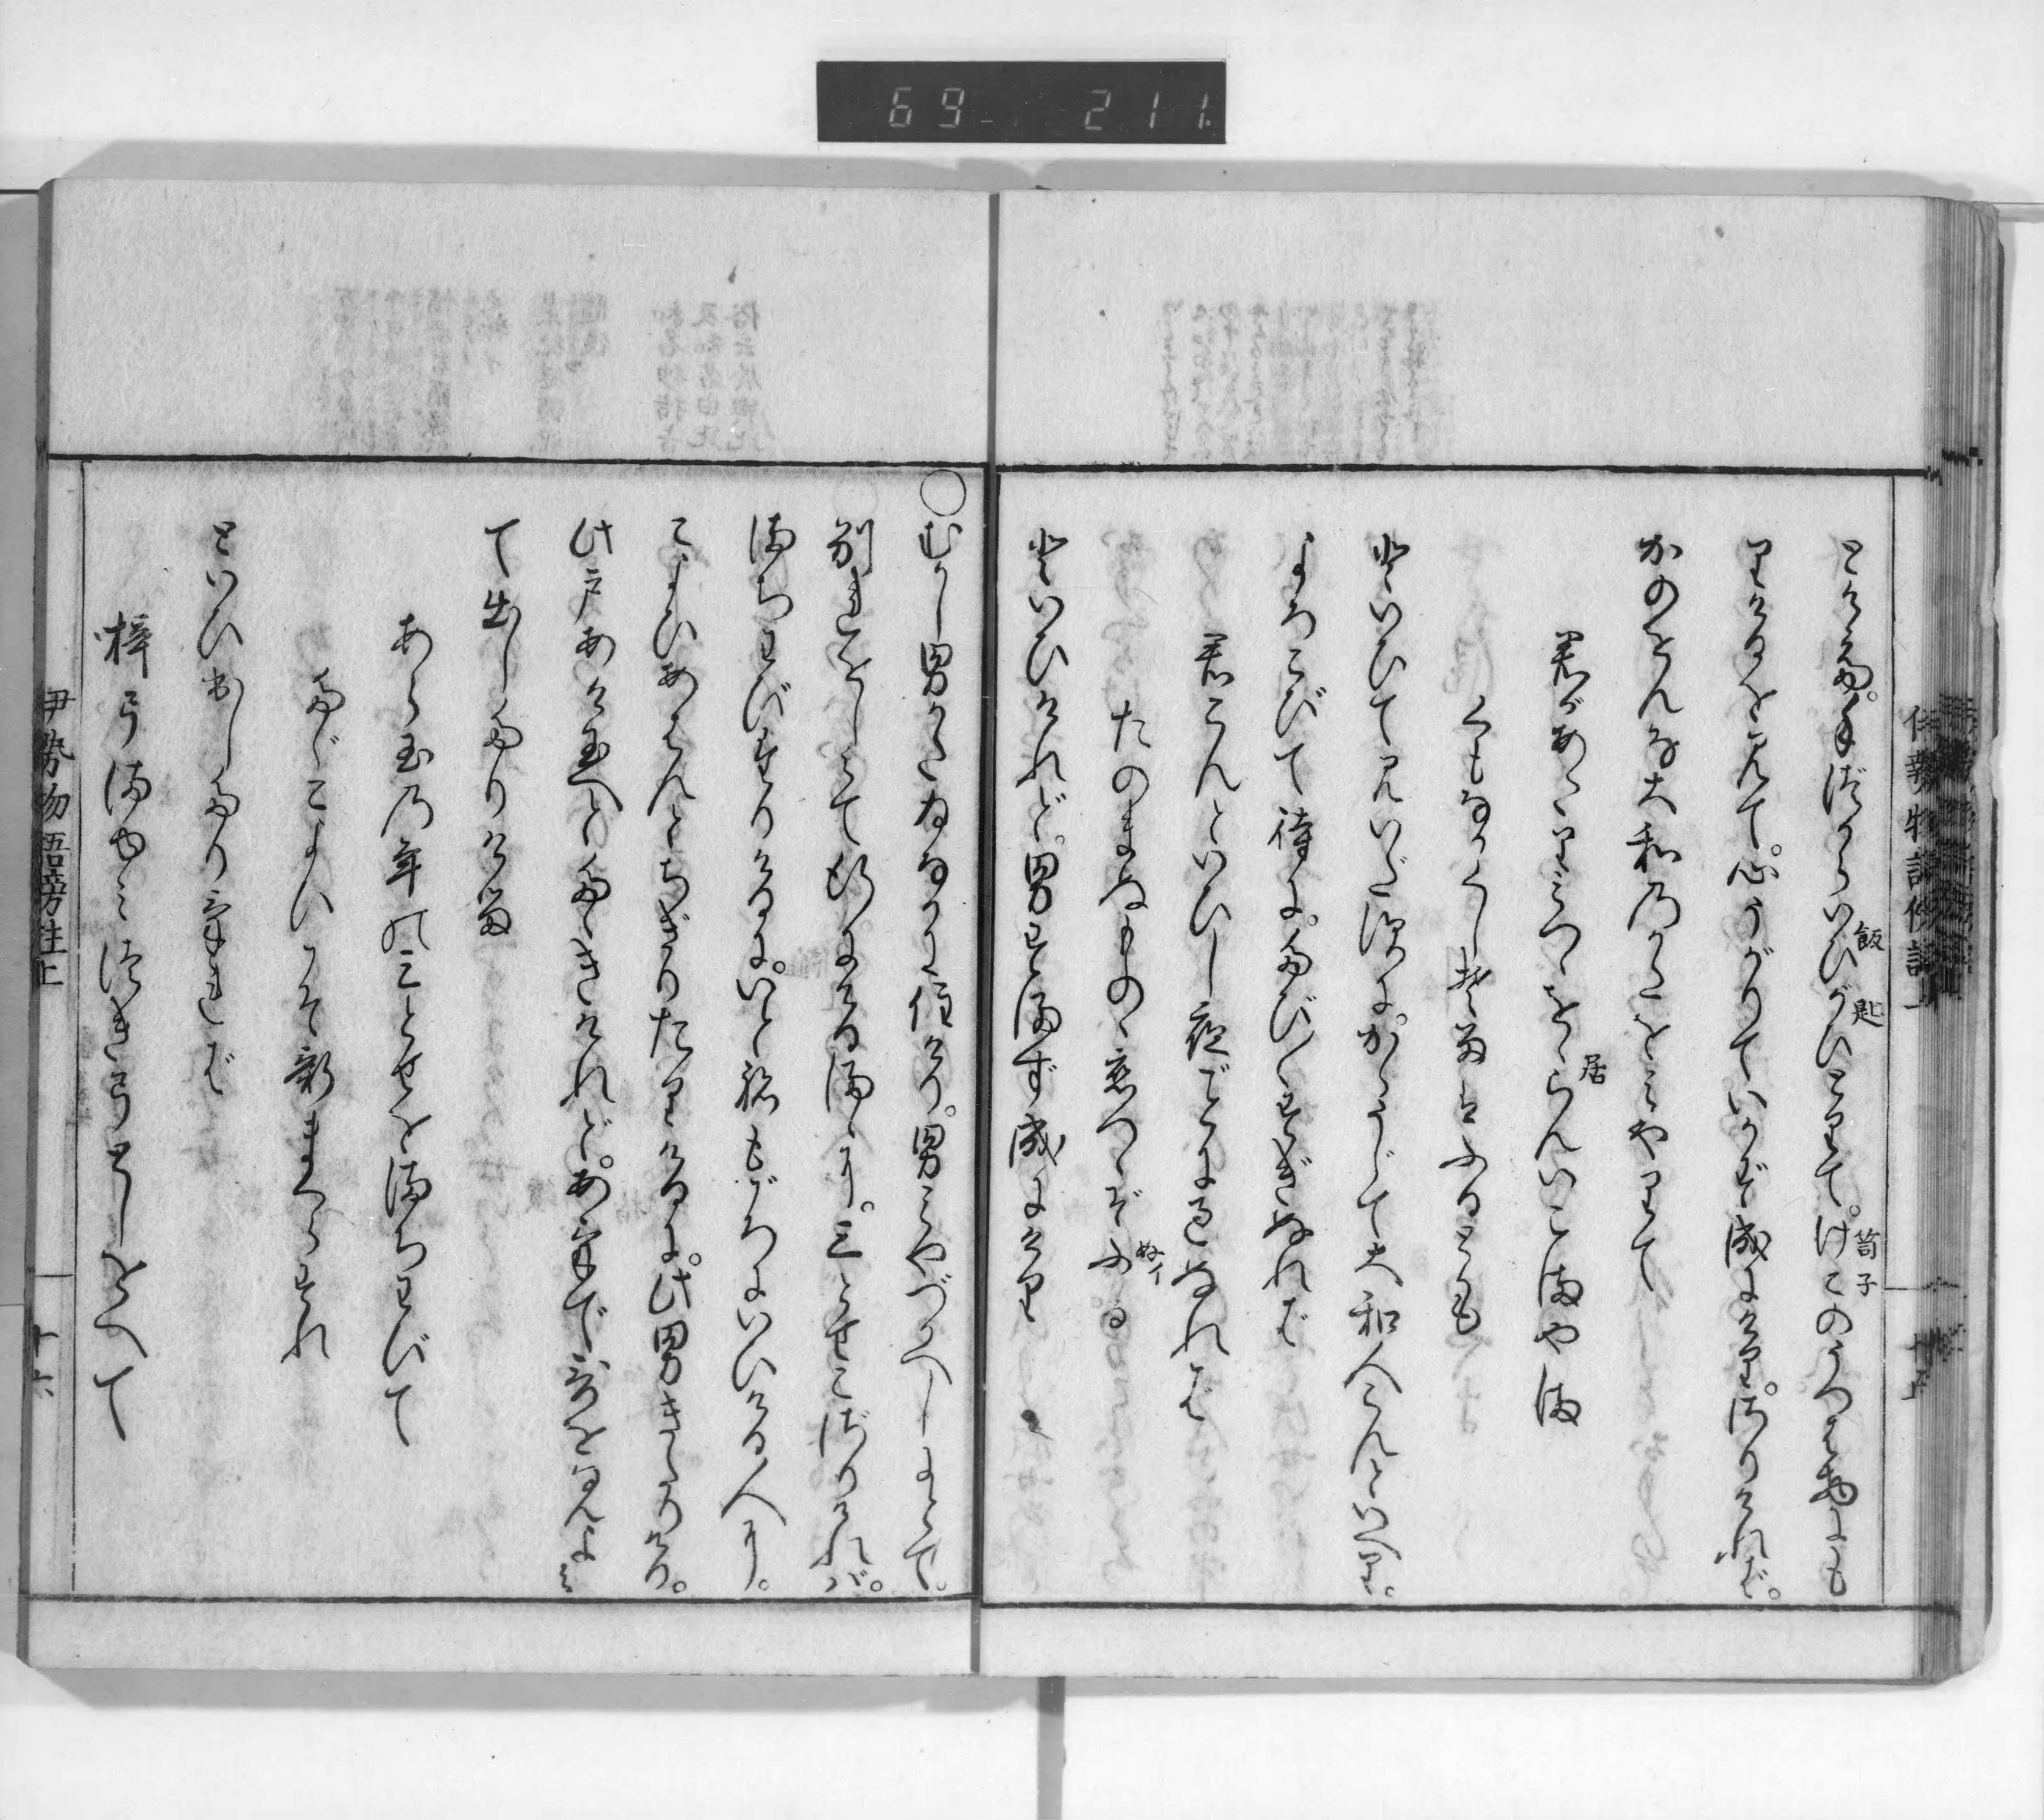 69 211
とけて。手づからいひがひとりて。けこのうつは物にも
飯 匙
笥子
りけるを見て。心うがりていかず成にけり。さりければ。
かのをんな大和のかたをみやりて
君があたりみつゝをらんいこま山
居
くもなかくしそ雨はふるとも
といひて見いだすに。からうじて大和人こんといへり。
よろこびて待に。たび〳〵すぎぬれば
君こんといひし夜ごとに過ぬれば
たのまぬものゝ恋つゝぞふる
ぬイ
といひけれど。男すまず成にけり
○むかし男かたゐなかに住けり。男みやづかへしにとて。
別をしみて行にけるまゝに。三とせこざりければ。
まちわびたりけるに。いと念もごろにいひける人に。
こよひあはんとちぎりたりけるに。此男きたりけり。
此戸あけ給へとたゝきけれど。あけで哥をなんよみ
て出したりける
あら玉の年の三とせをまちわびて
たゞこよひこそ新まくらすれ
といひ出したりければ
梓弓ま弓つき弓年をへて
伊勢物語旁注上
十六